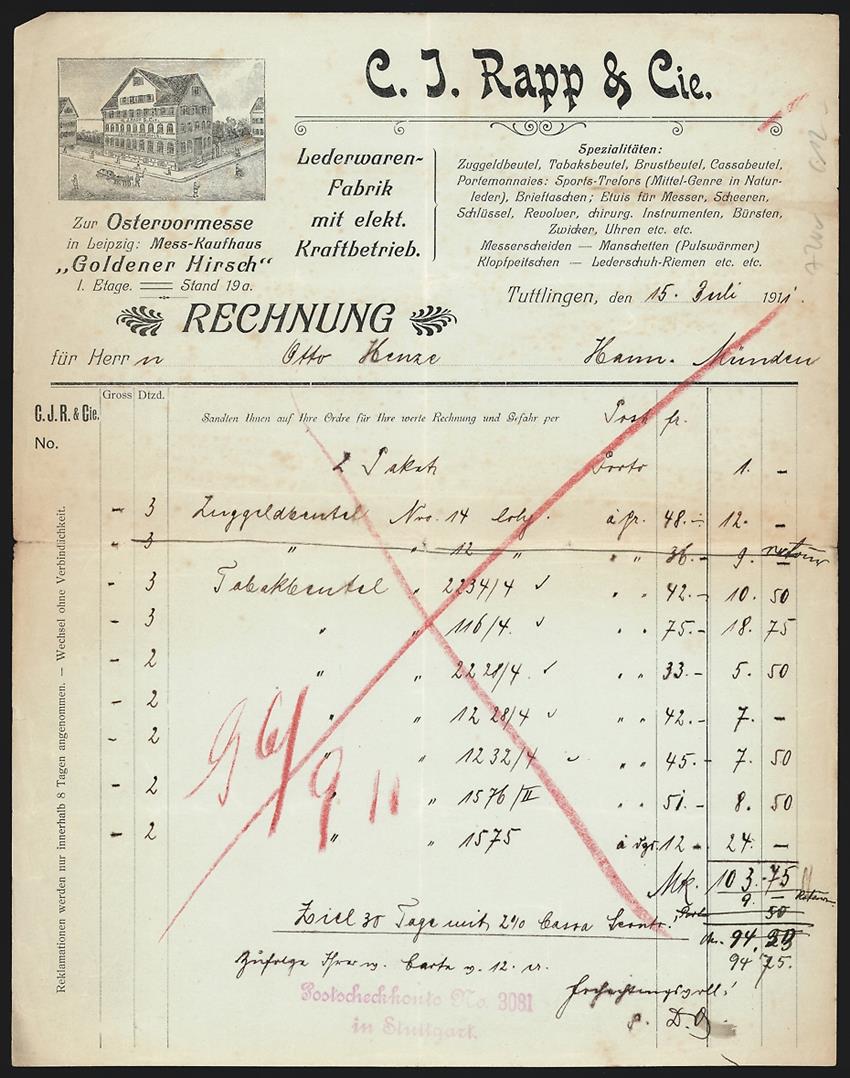 C. J. Rapp & Cie.
Zur Ostervormesse
in Leipzig: Mess-Kaufhaus
„Goldener Hirsch"
I. Etage. Stand 19a.
Lederwaren-
Fabrik
mit elekt.
Kraftbetrieb.
Spezialitäten:
Zuggeldbeutel, Tabaksbeutel, Brustbeutel, Cassabeutel,
Portemonnaies: Sports-Tresors (Mittel-Genre in Natur-
leder), Brieftaschen; Etuis für Messer, Scheeren,
Schlüssel, Revolver, chirurg. Instrumenten, Bürsten,
Zwicker, Uhren etc. etc.
Messerscheiden — Manschetten (Pulswärmer)
Klopfpeitschen — Lederschuh-Riemen etc. etc.
Tuttlingen, den 15. Juli 1911.
RECHNUNG
für Herrn Otto Henze Hann. Münden
C. J. R. & Cie. Gross Dtzd. Sandten Ihnen auf Ihre Ordre für Ihre werte Rechnung und Gefahr per Post fr.
No.
2 Pakete Porto 1. –
– 3 Zuggeldbeutel Nro. 14 à gr. 48.– 12. –
– 3 " " 12 " " " 36.– 9. – retour
– 3 Tabakbeutel " 2234/4 " " 42.– 10. 50
– 3 " " 116/4. " " 75.– 18. 75
– 2 " " 2228/4. " " 33.– 5. 50
– 2 " " 1228/4 " " 42.– 7. –
– 2 " " 1232/4 " " 45.– 7. 50
– 2 " " 1576/II " " 51.– 8. 50
– 2 " " 1575 à 12 – 24. –
Mk. 103.75
9. – Retour
Porto 50
Ziel 30 Tage mit 2% Cassa Sconto.
M. 94.
94 75.
Zufolge Ihrer w. Carte v. 12. cr.
Hochachtungsvoll!
Postscheckkonto No. 3081
in Stuttgart.
6/9 11
Reklamationen werden nur innerhalb 8 Tagen angenommen. — Wechsel ohne Verbindlichkeit.